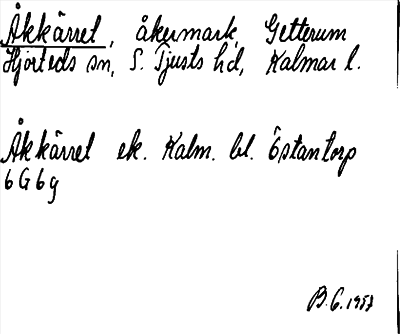 Åkkärret, åkermark, Getterum
Hjorteds sn, S. Tjusts hd, Kalmar l.
Åkkärret ek. Kalm. bl. Östantorp
6G6g
B.G. 1957